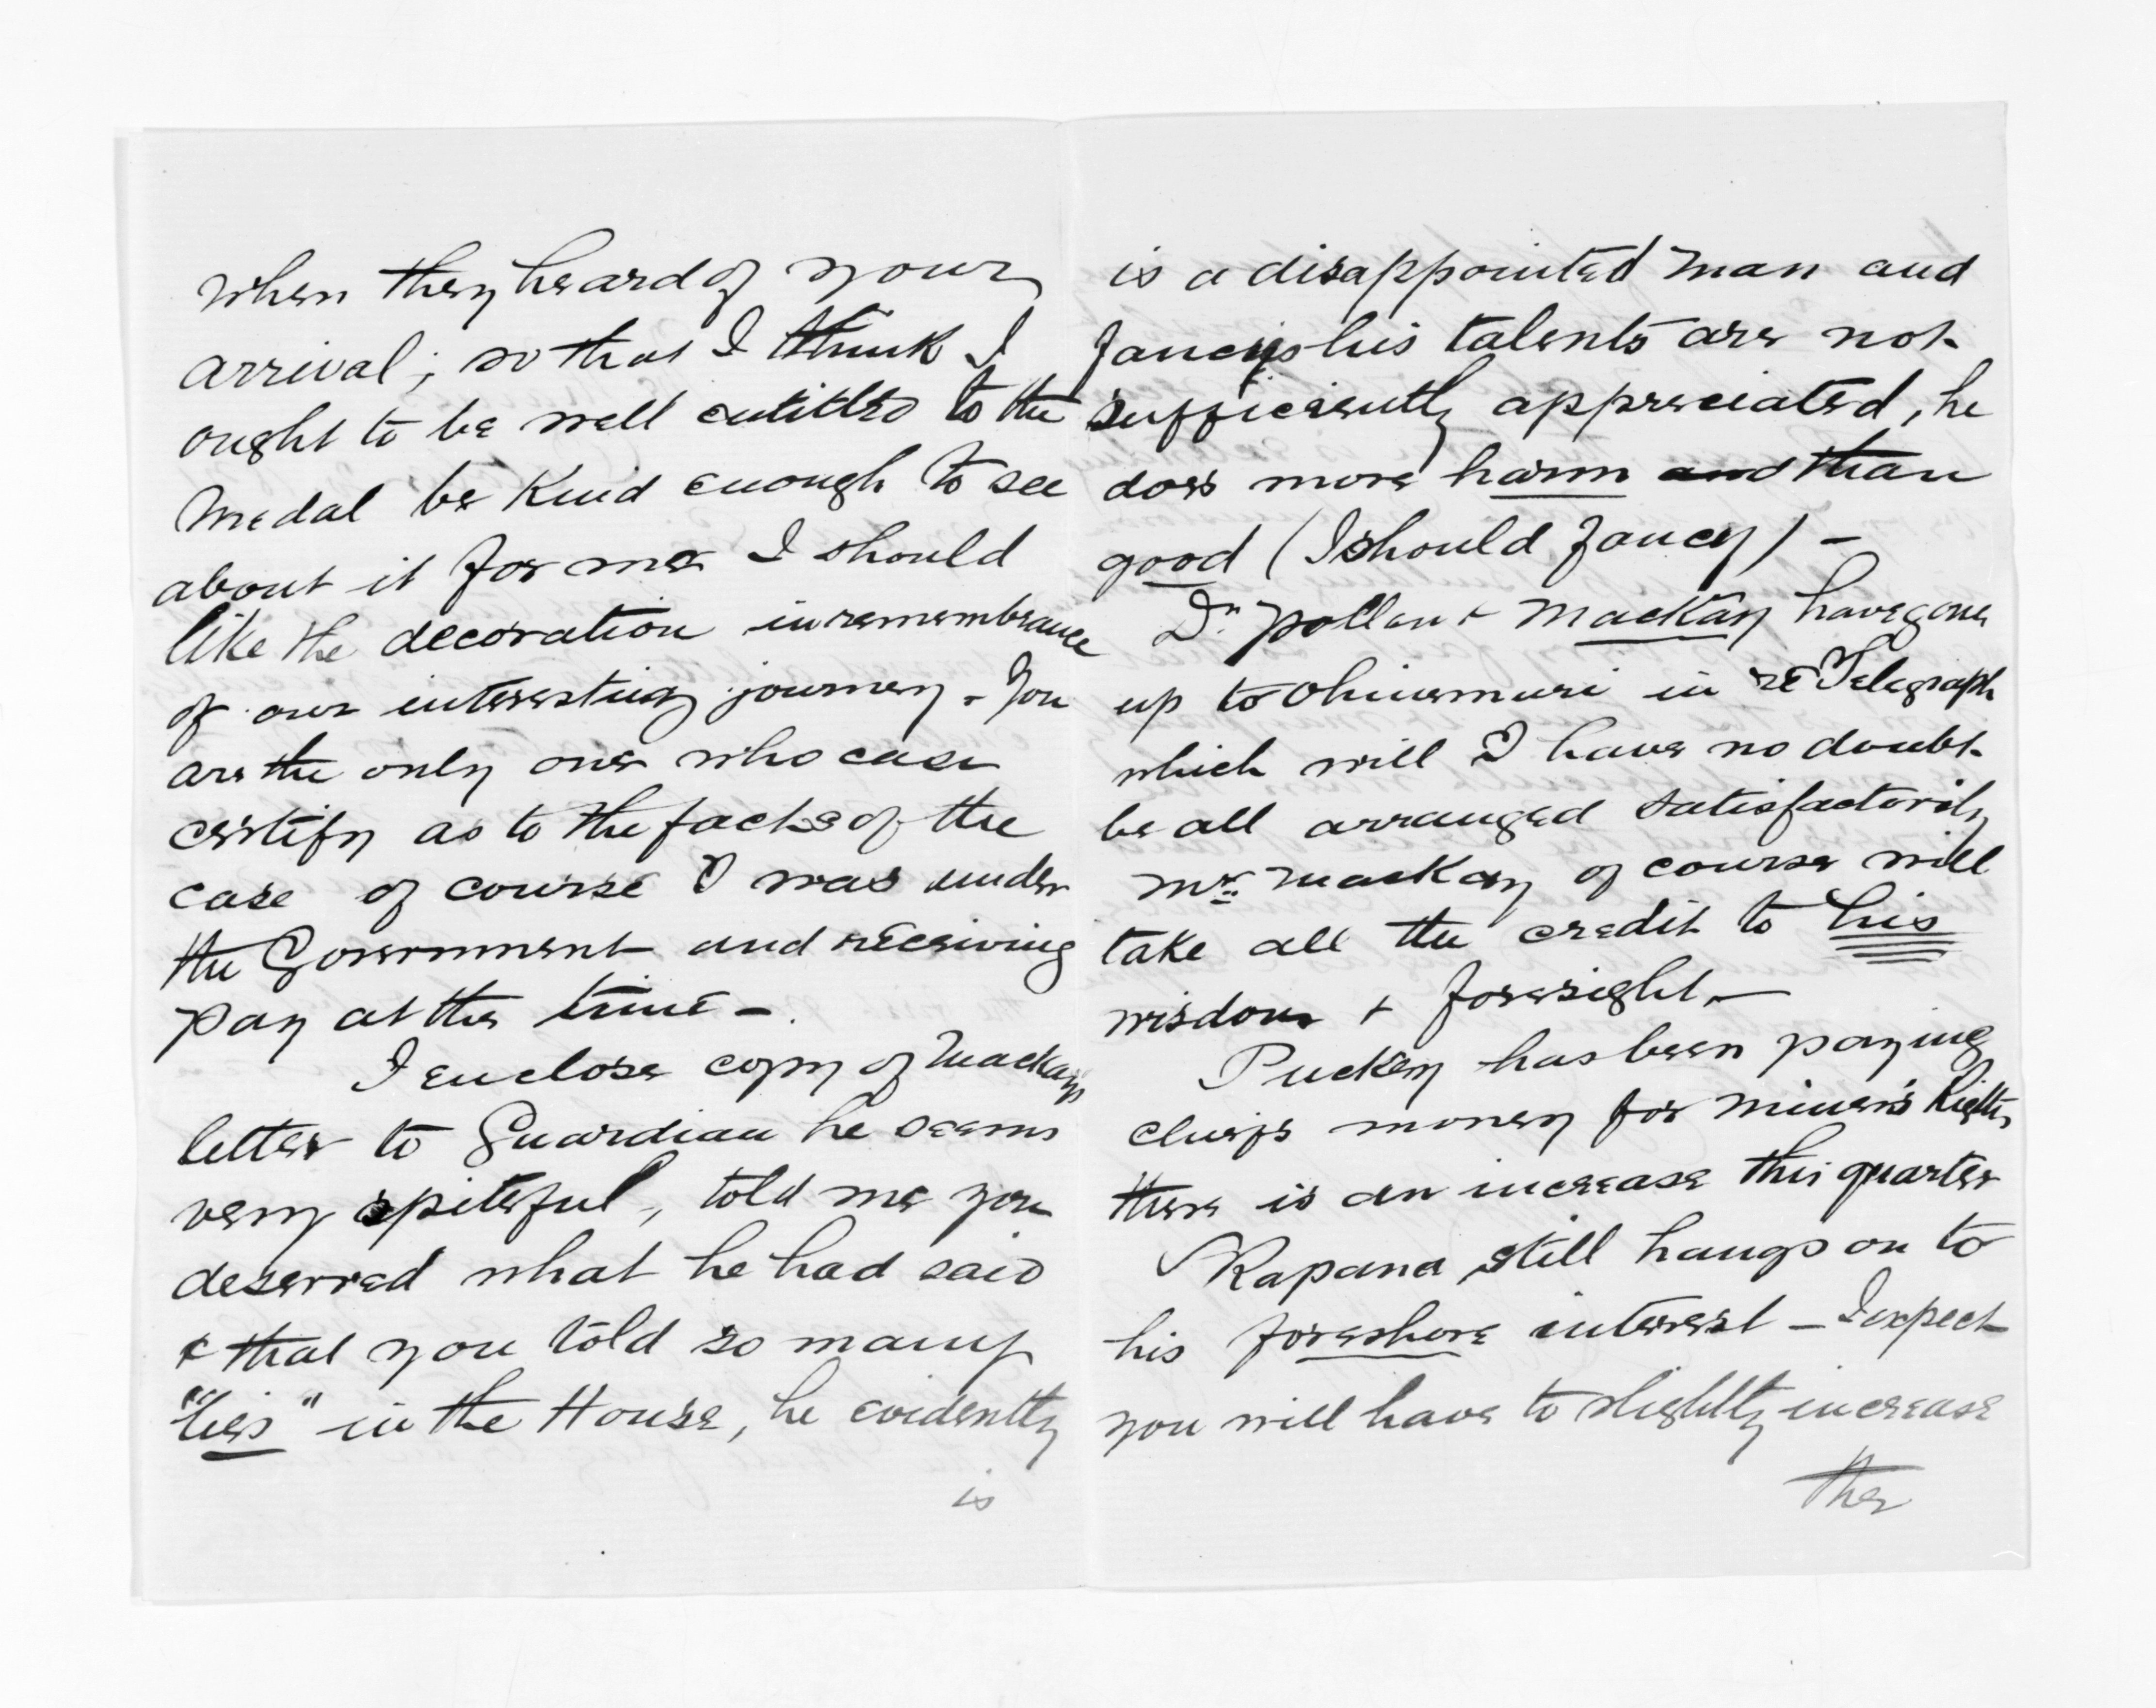 when they heard of your
arrival; so that I think I
ought to be well entitled to the
medal be kind enough to see
about it for me I should
like the decoration in remembrance
of our interesting journey - You
are the only one who can
certify as to the facts of the
case of course I was under
the Government and receiving
pay at the time -
I enclose copy of Mackays
letter to Guardian he seems
very spiteful, told me you
deserved what he had said
& that you told so many
"lies" in the House, he evidently
is
is a disappointed man and
fancys his talents are not
sufficiently appreciated, he
does more harm and than
good (I should fancy) -
Dr. Pollen & MacKay have gone
up to Ohinemuri in re Telegraph
which will I have no doubt
be all arranged satisfactorily
Mr. MacKay of course will
take all the credit to his
wisdom & foresight. -
Puckey has been paying
chiefs money for miner's Rights,
there is an increase this quarter
Rapana still hangs on to
his foreshore interest - I expect
you will have to slightly increase
the